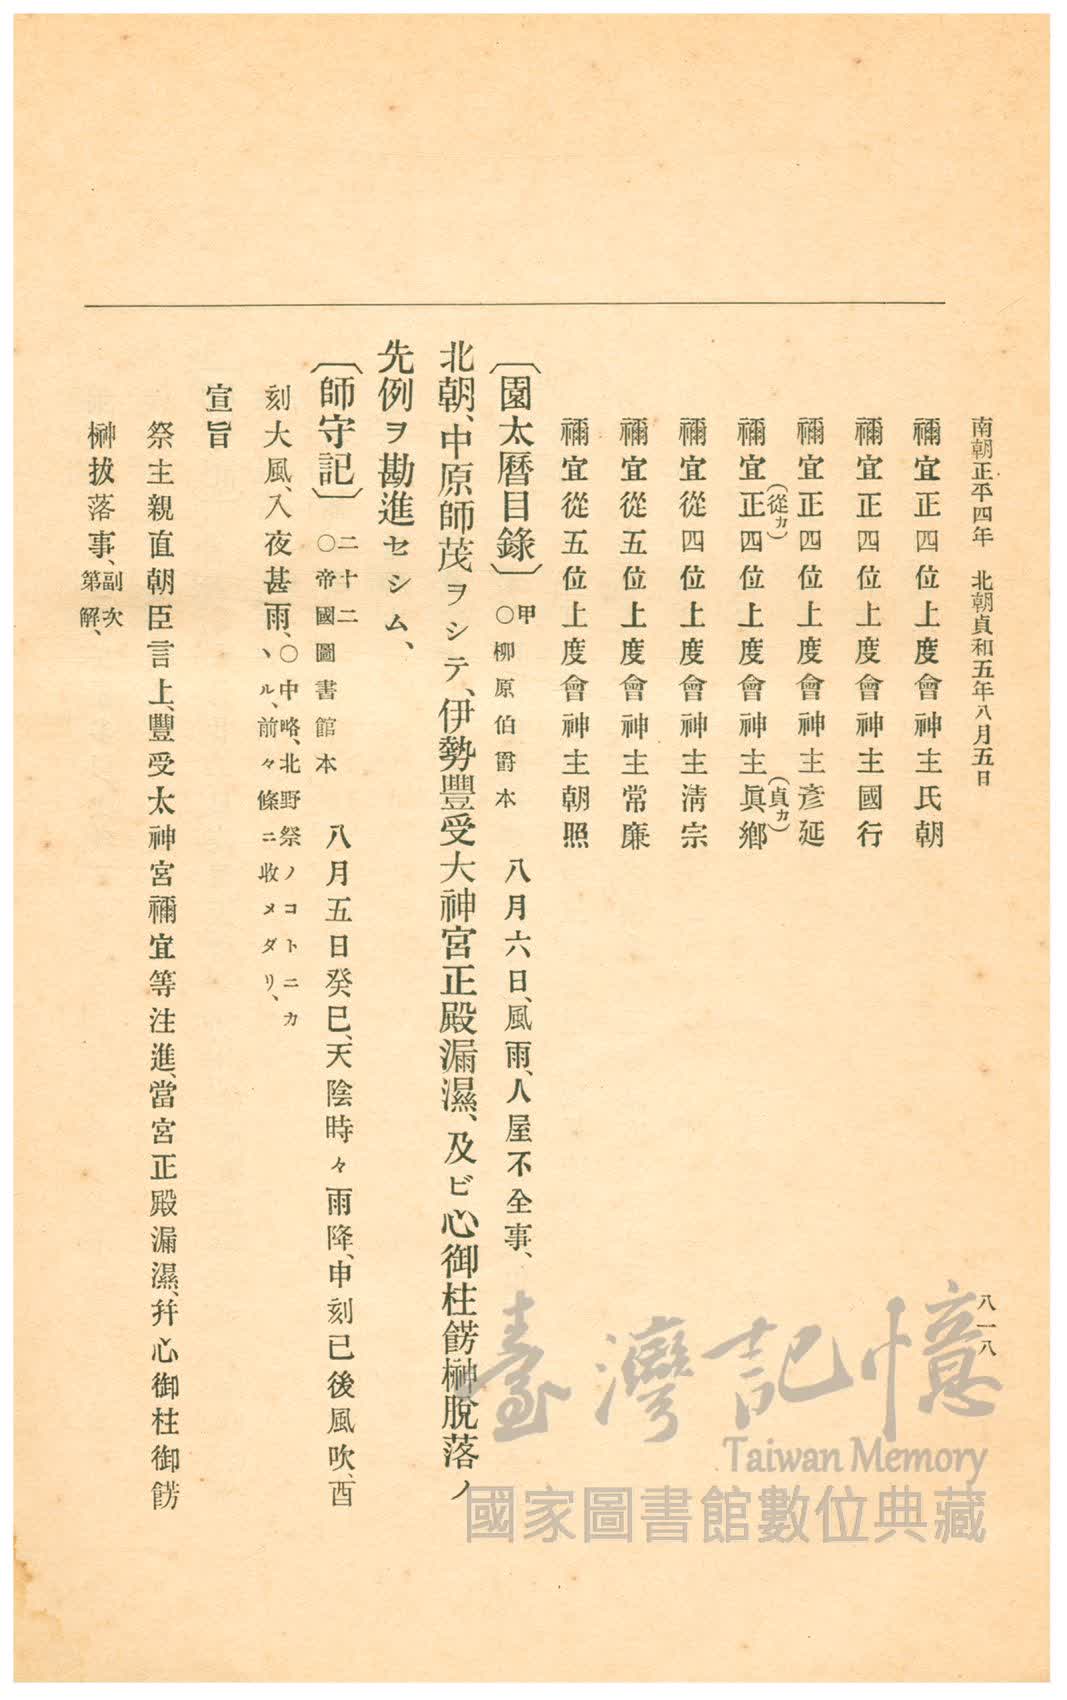 南朝正平四年　北朝貞和五年八月五日
八一八
禰宜正四位上度會神主氏朝
禰宜正四位上度會神主國行
禰宜正四位上度會神主彥延
禰宜正(從カ)四位上度會神主眞(貞カ)鄉
禰宜從四位上度會神主淸宗
禰宜從五位上度會神主常廉
禰宜從五位上度會神主朝照
〔園太曆目錄〕甲○柳原伯爵本　八月六日、風雨、人屋不全事、
北朝、中原師茂ヲシテ、伊勢豐受大神宮正殿漏濕、及ビ心御柱餝榊脫落ノ
先例ヲ勘進セシム、
〔師守記〕二十二○帝國圖書館本　八月五日癸巳、天陰時々雨降、申刻已後風吹、酉
刻大風、入夜甚雨、○中略、北野祭ノコトニカヽル、前々條ニ收メタリ、
宣旨
祭主親直朝臣言上、豐受太神宮禰宜等注進、當宮正殿漏濕、幷心御柱御餝
榊拔落事、副次第解、
臺灣記憶
Taiwan Memory
國家圖書館數位典藏